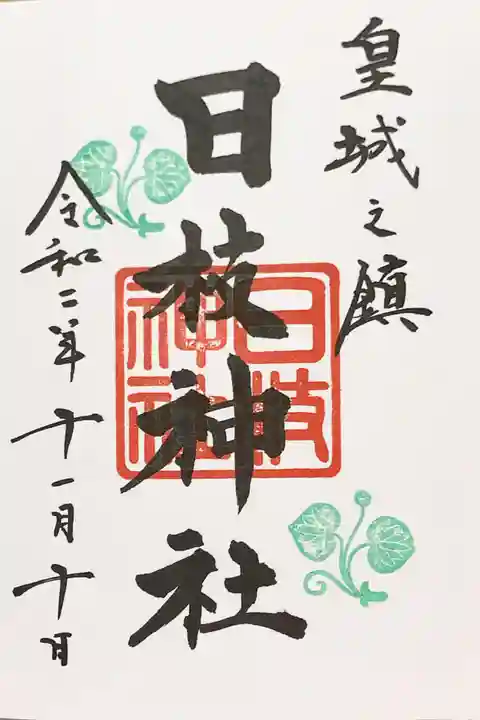 皇城之鎮
日枝神社
日枝
神社
令和二年十一月十日